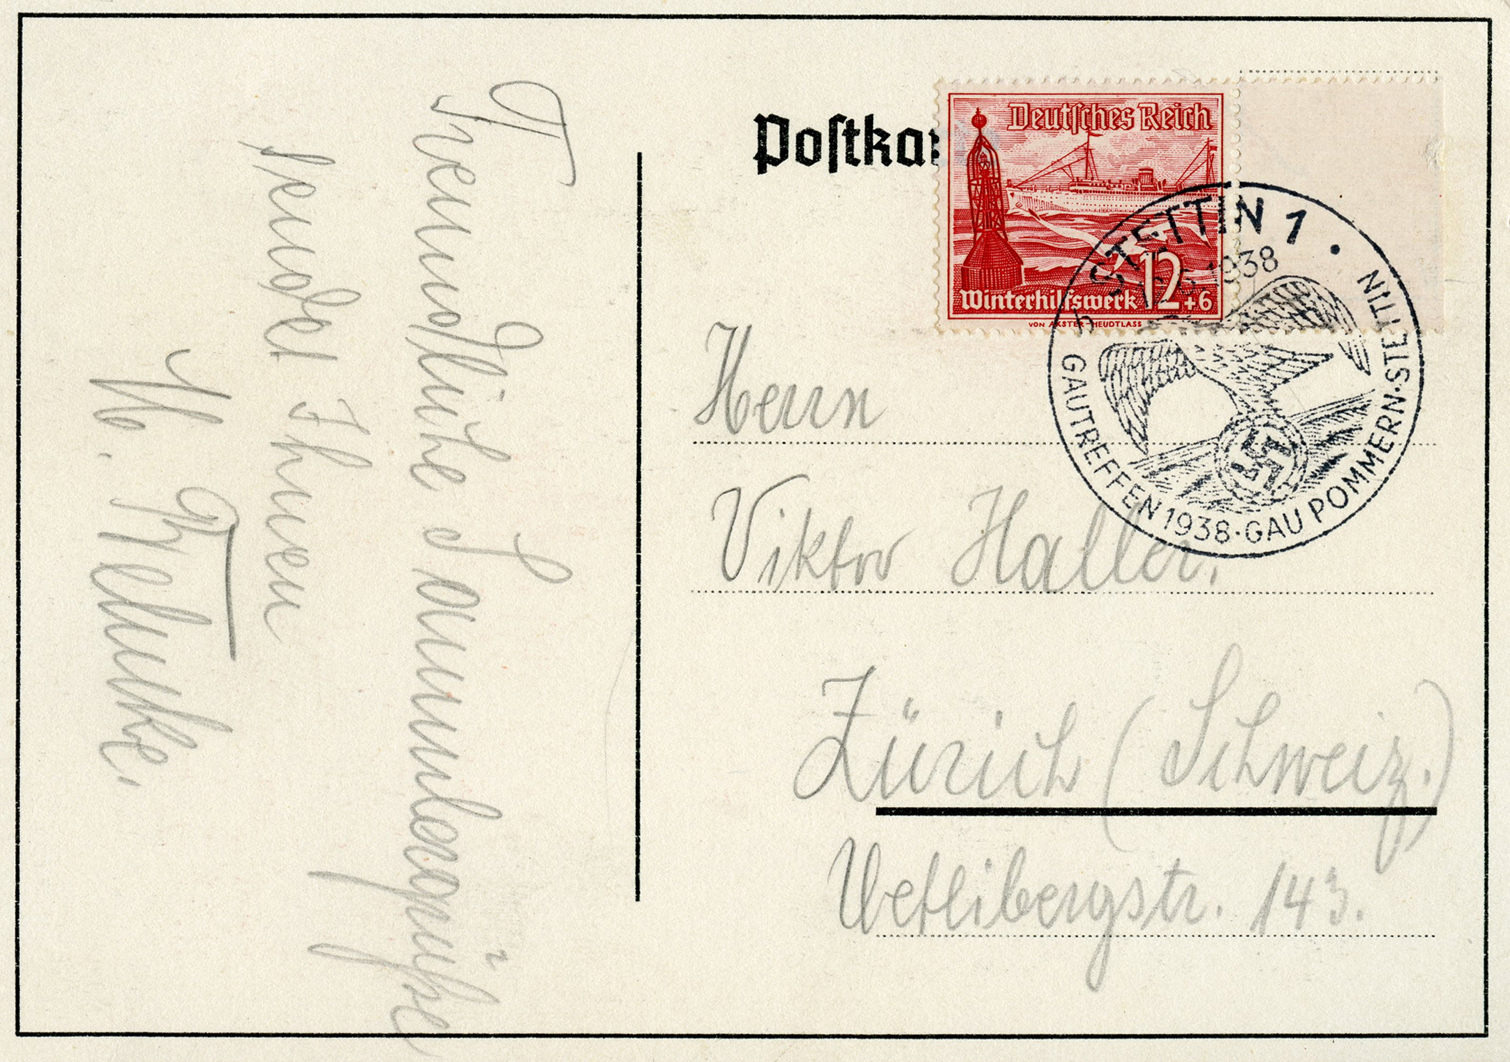 Freundliche Sammlergrüße
sendet Ihnen
Postka
Deutsches Reich
Winterhilfswerk 12+6
VON AXSTER-HEUDTLASS
STETTIN 1
1938
GAUTREFFEN 1938·GAU POMMERN·STETTIN
Herrn
Viktor Haller,
Zürich (Schweiz.)
Uetlibergstr. 143.